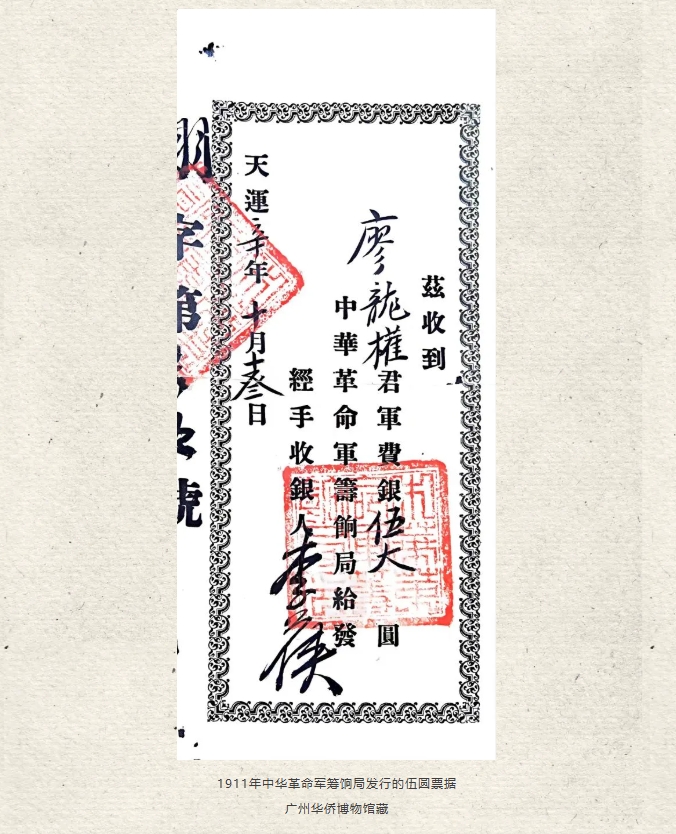 茲收到
廖龍權君軍費銀伍大圓
中華革命軍籌餉局給發
經手收銀人李
天運年十月叁日
字第號
1911年中华革命军筹饷局发行的伍圆票据
广州华侨博物馆藏